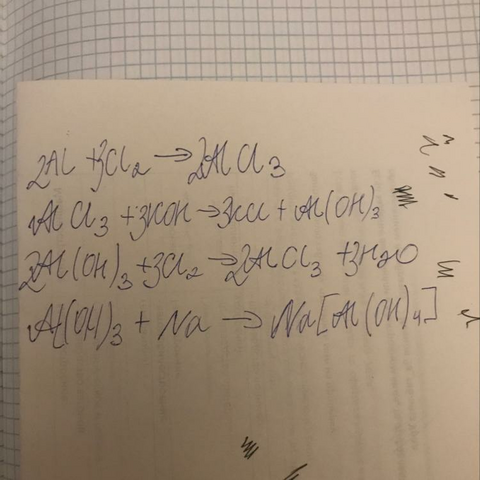 2Al + 3Cl₂ → 2AlCl₃
AlCl₃ + 3KOH → 3KCl + Al(OH)₃
2Al(OH)₃ + 3Cl₂ → 2AlCl₃ + 3H₂O
Al(OH)₃ + Na → Na[Al(OH)₄]